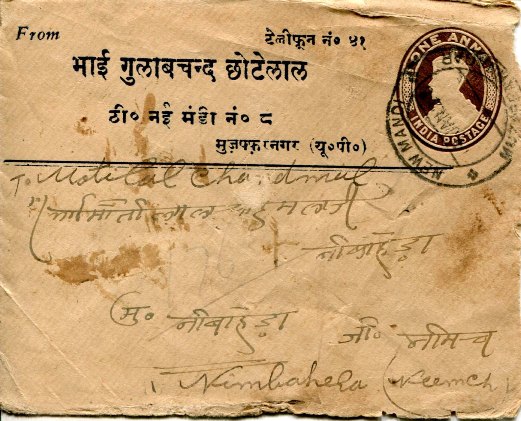 From
टेलीफून नं० ४१
भाई गुलाबचन्द छोटेलाल
ठी० नई मंडी नं० ८
मुज़फ्फ़रनगर (यू०पी०)
ONE ANNA
INDIA POSTAGE
NEW MANDI
To Motilal Chandmal
नीबाहेड़ा
मु० नीबाहेड़ा जी० नीमच
Nimbahera (Neemch)